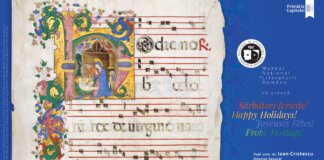 Primăria
Capitalei
Muzeul
Național
Literaturii
Române
vă urează
Sărbători fericite!
Happy Holidays!
Joyeuses Fêtes!
Frohe Festtage!
Ioan Cristescu
Director General
de virgine